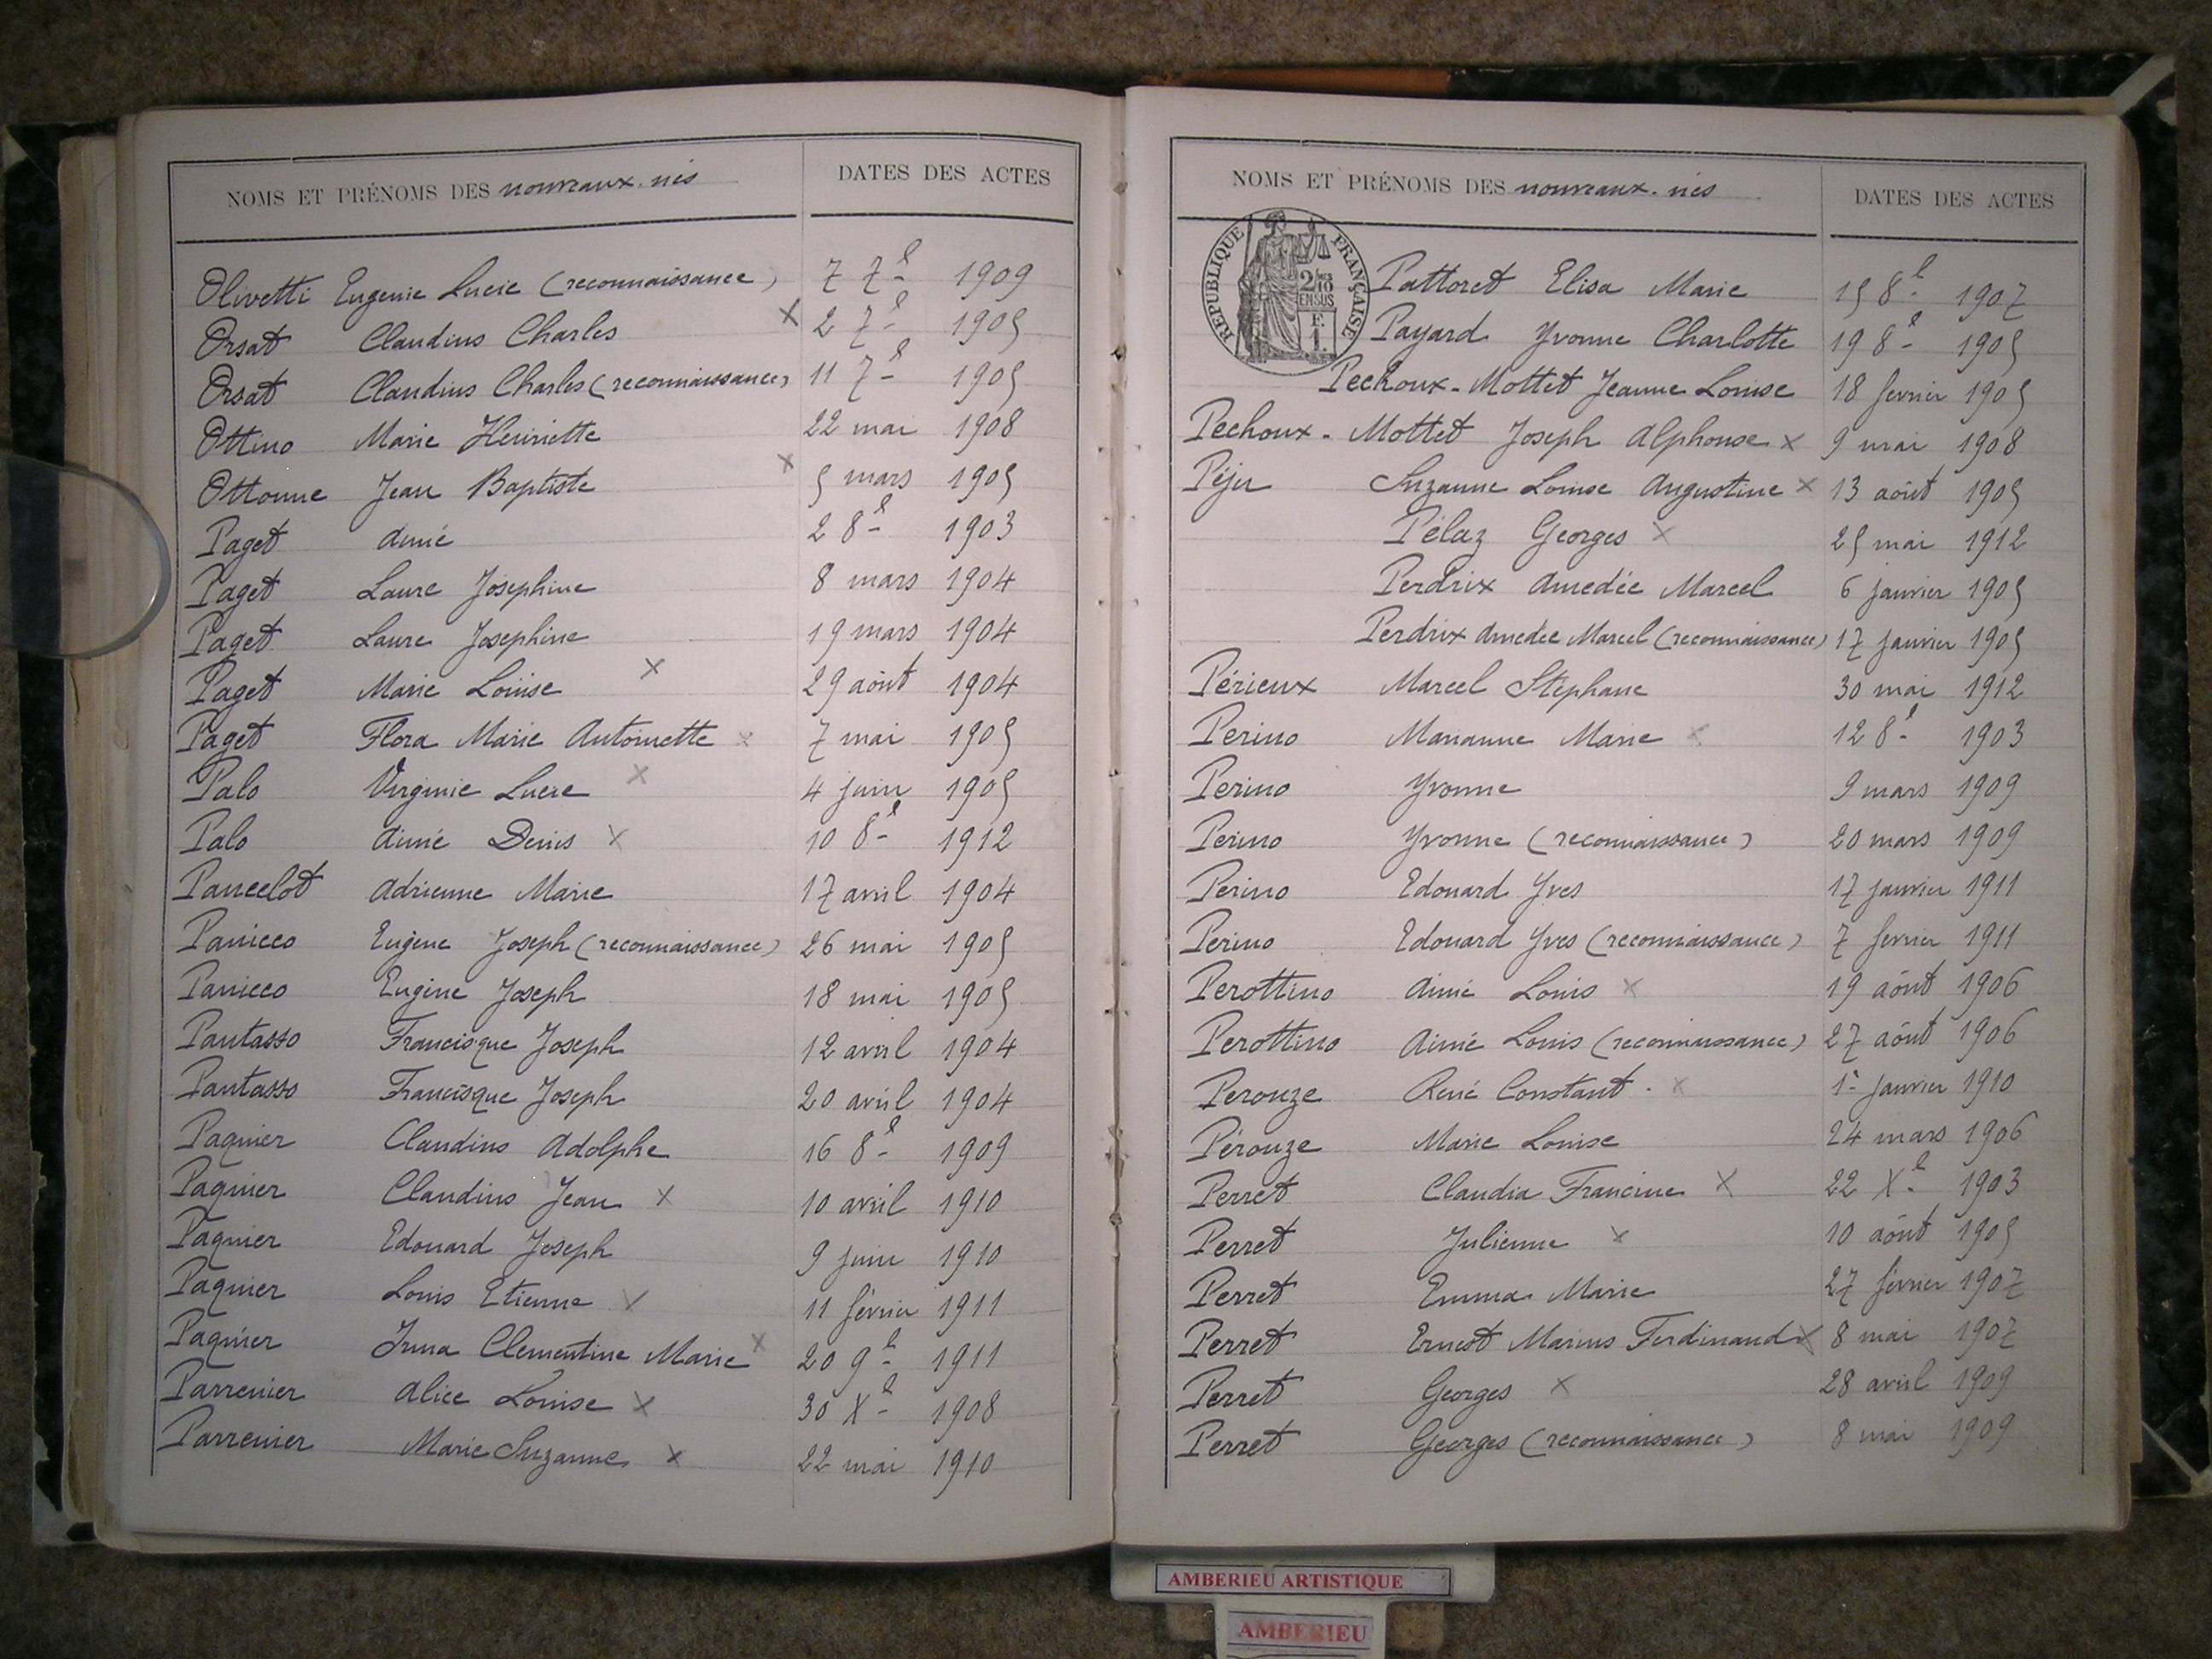 NOMS ET PRÉNOMS DES nouveaux-nés DATES DES ACTES
Olivetti Eugenie Lucie (reconnaissance) 7 7e 1909
Orsat Claudius Charles X 2 7e 1905
Orsat Claudius Charles (reconnaissance) 11 7e 1905
Ottino Marie Henriette 22 mai 1908
Ottonne Jean Baptiste X 5 mars 1905
Paget Aimé 2 8e 1903
Paget Laure Josephine 8 mars 1904
Paget Laure Josephine 19 mars 1904
Paget Marie Louise X 29 août 1904
Paget Flora Marie Antoinette X 7 mai 1905
Palo Virginie Lucie X 4 juin 1905
Palo Aimé Denis X 10 8e 1912
Pancelot Adrienne Marie 17 avril 1904
Panicco Eugène Joseph (reconnaissance) 26 mai 1905
Panicco Eugène Joseph 18 mai 1905
Pantasso Francisque Joseph 12 avril 1904
Pantasso Francisque Joseph 20 avril 1904
Paquier Claudius Adolphe 16 8e 1909
Paquier Claudius Jean X 10 avril 1910
Paquier Edouard Joseph 9 juin 1910
Paquier Louis Etienne X 11 février 1911
Paquier Irma Clementine Marie X 20 9e 1911
Parrenier Alice Louise X 30 Xe 1908
Parrenier Marie Suzanne X 22 mai 1910
NOMS ET PRÉNOMS DES nouveaux-nés DATES DES ACTES
RÉPUBLIQUE FRANÇAISE
2/10 EN SUS
F. 1.
Pattoret Elisa Marie 15 8e 1907
Payard Yvonne Charlotte 19 8e 1905
Pechoux-Mottet Jeanne Louise 18 fevrier 1905
Pechoux-Mottet Joseph Alphonse X 9 mai 1908
Péju Suzanne Louise Augustine X 13 août 1905
Pélaz Georges X 25 mai 1912
Perdrix Amedée Marcel 6 janvier 1905
Perdrix Amedée Marcel (reconnaissance) 17 janvier 1905
Périeux Marcel Stéphane 30 mai 1912
Perino Marianne Marie X 12 8e 1903
Perino Yvonne 9 mars 1909
Perino Yvonne (reconnaissance) 20 mars 1909
Perino Edouard Yves 17 janvier 1911
Perino Edouard Yves (reconnaissance) 7 fevrier 1911
Perottino Aimé Louis X 19 août 1906
Perottino Aimé Louis (reconnaissance) 27 août 1906
Perouze René Constant. X 1er janvier 1910
Pérouze Marie Louise 24 mars 1906
Perret Claudia Francine X 22 Xe 1903
Perret Julienne X 10 août 1905
Perret Emma Marie 27 février 1907
Perret Ernest Marius Ferdinand X 8 mai 1907
Perret Georges X 28 avril 1909
Perret Georges (reconnaissance) 8 mai 1909
AMBERIEU ARTISTIQUE
AMBERIEU